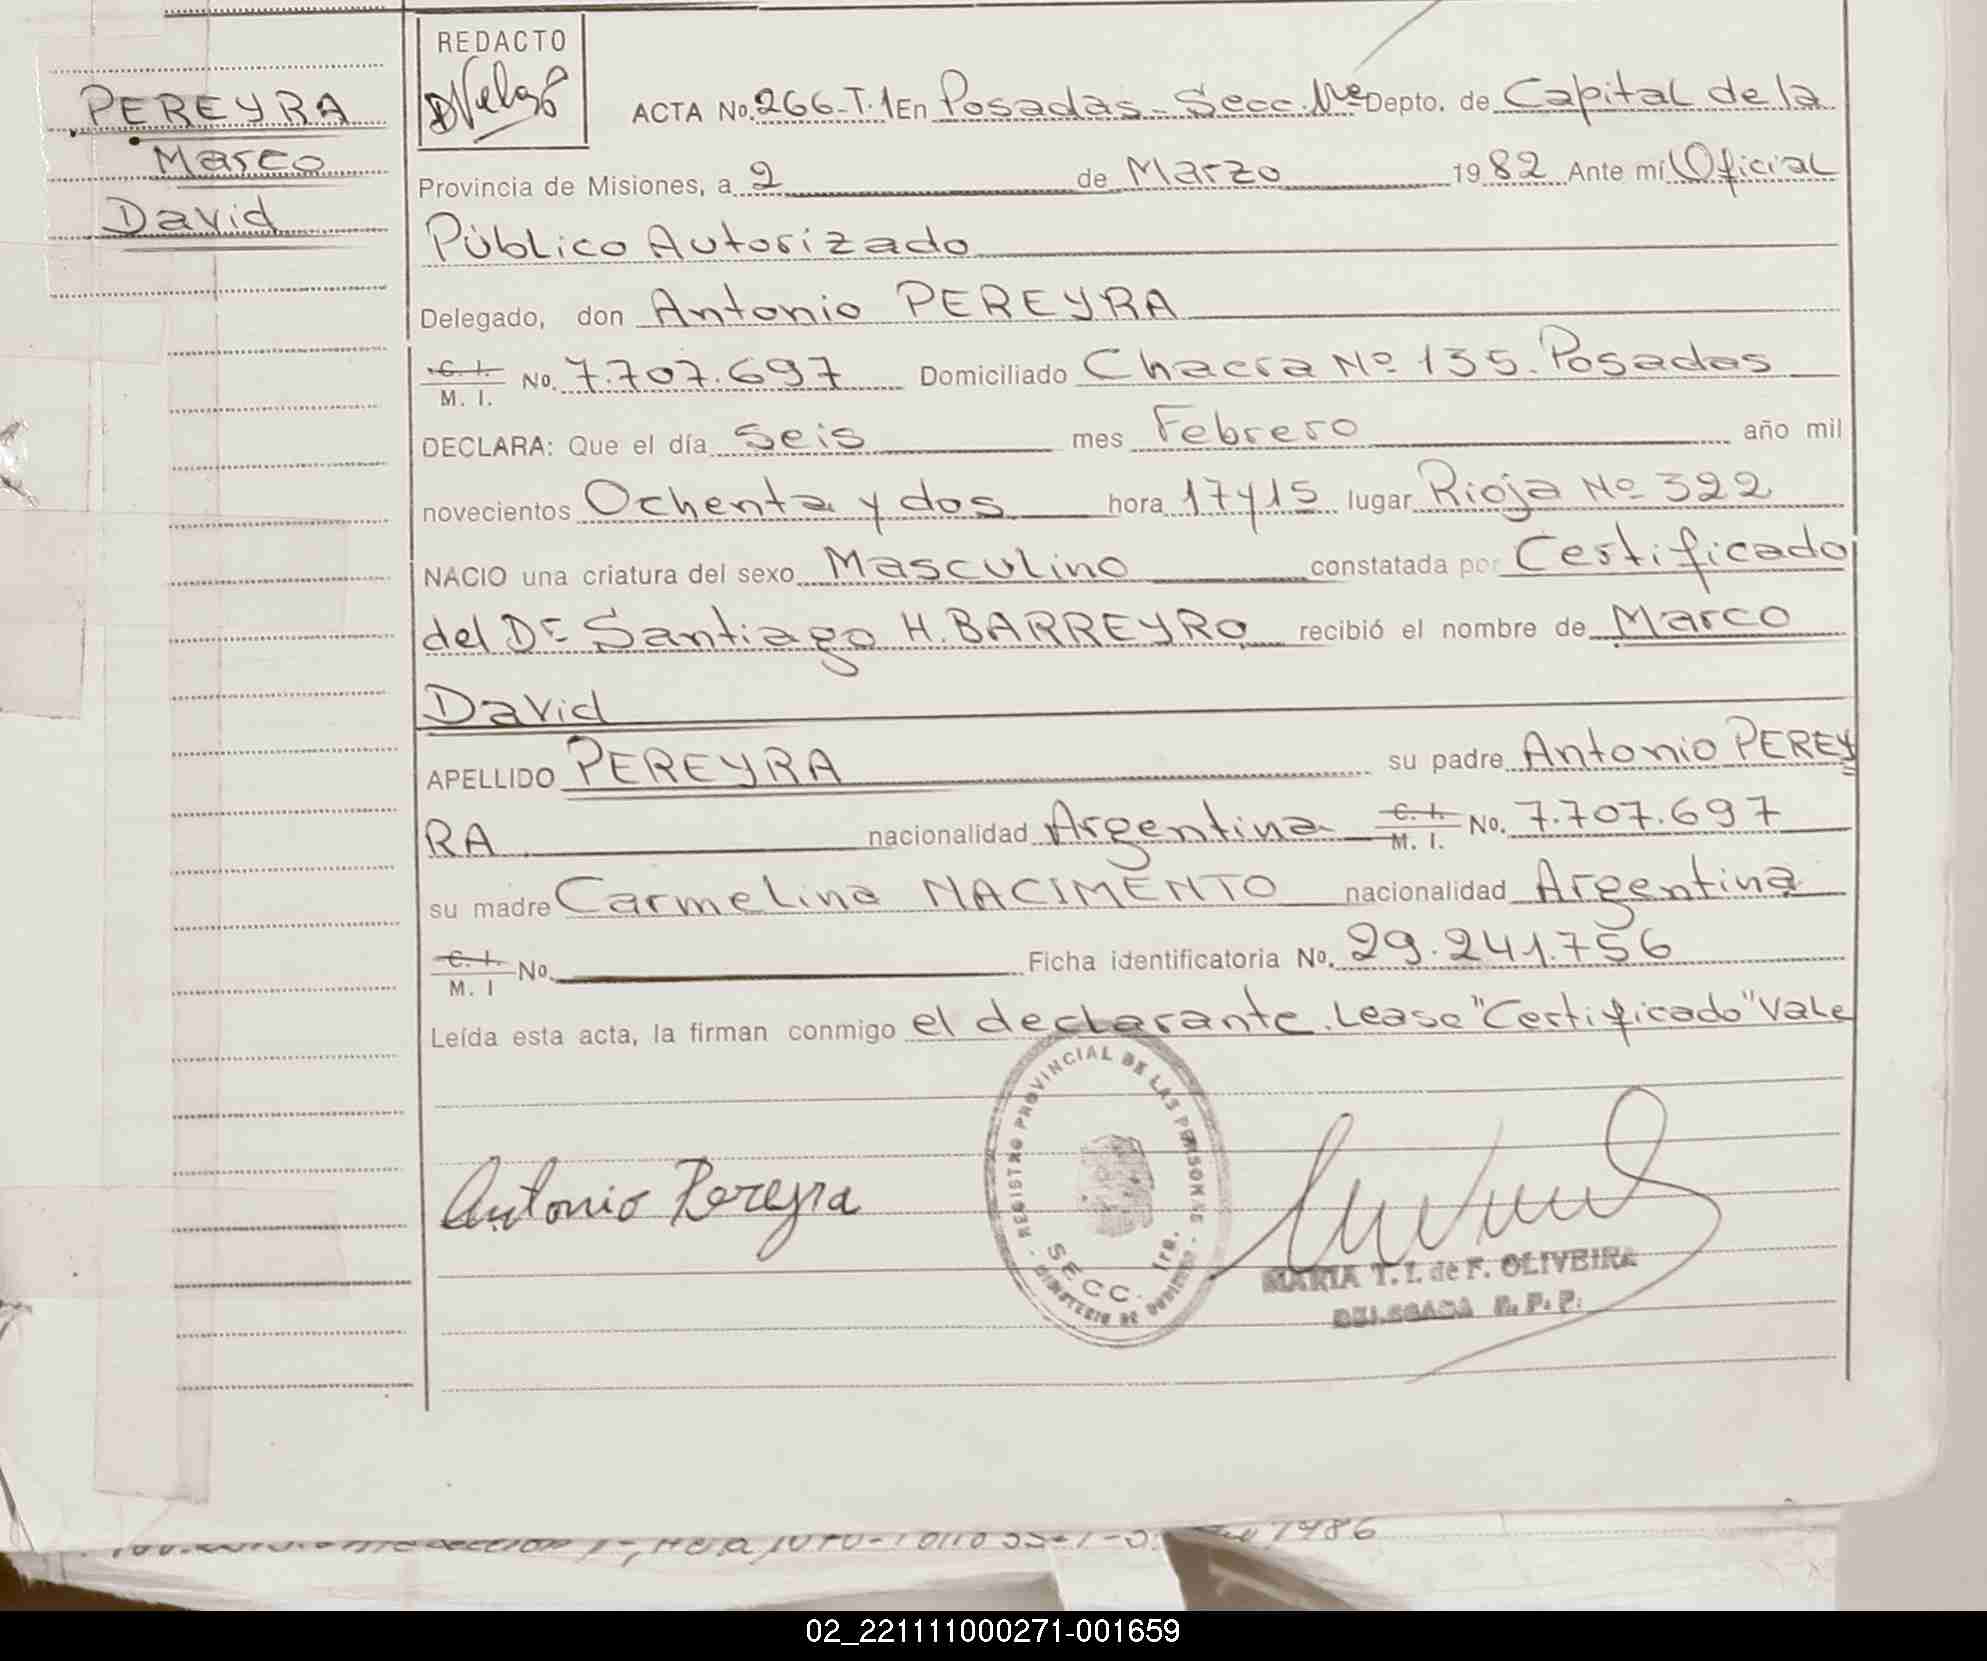 PEREYRA
Marco
David
REDACTO
ACTA No. 266-T.1 En Posadas - Secc. 1ra Depto. de Capital de la
Provincia de Misiones, a 2 de Marzo 1982 Ante mi Oficial
Público Autorizado
Delegado, don Antonio PEREYRA
C. I.
M. I. No. 7.707.697 Domiciliado Chacra Nº 135. Posadas
DECLARA: Que el día Seis mes Febrero año mil
novecientos Ochenta y dos hora 17 y 15 lugar Rioja Nº 322
NACIO una criatura del sexo Masculino constatada por Certificado
del Dr Santiago H. BARREYRO recibió el nombre de Marco
David
APELLIDO PEREYRA su padre Antonio PEREY
RA nacionalidad Argentina C. I. M. I. No. 7.707.697
su madre Carmelina NACIMENTO nacionalidad Argentina
C. I.
M. I No. Ficha identificatoria No. 29.241.756
Leída esta acta, la firman conmigo el declarante. Lease "Certificado" Vale
REGISTRO PROVINCIAL DE LAS PERSONAS
SECC. 1ra.
MINISTERIO DE GOBIERNO
Antonio Pereyra
MARIA T. I. de F. OLIVEIRA
DELEGADA R. P. P.
1986
02_221111000271-001659